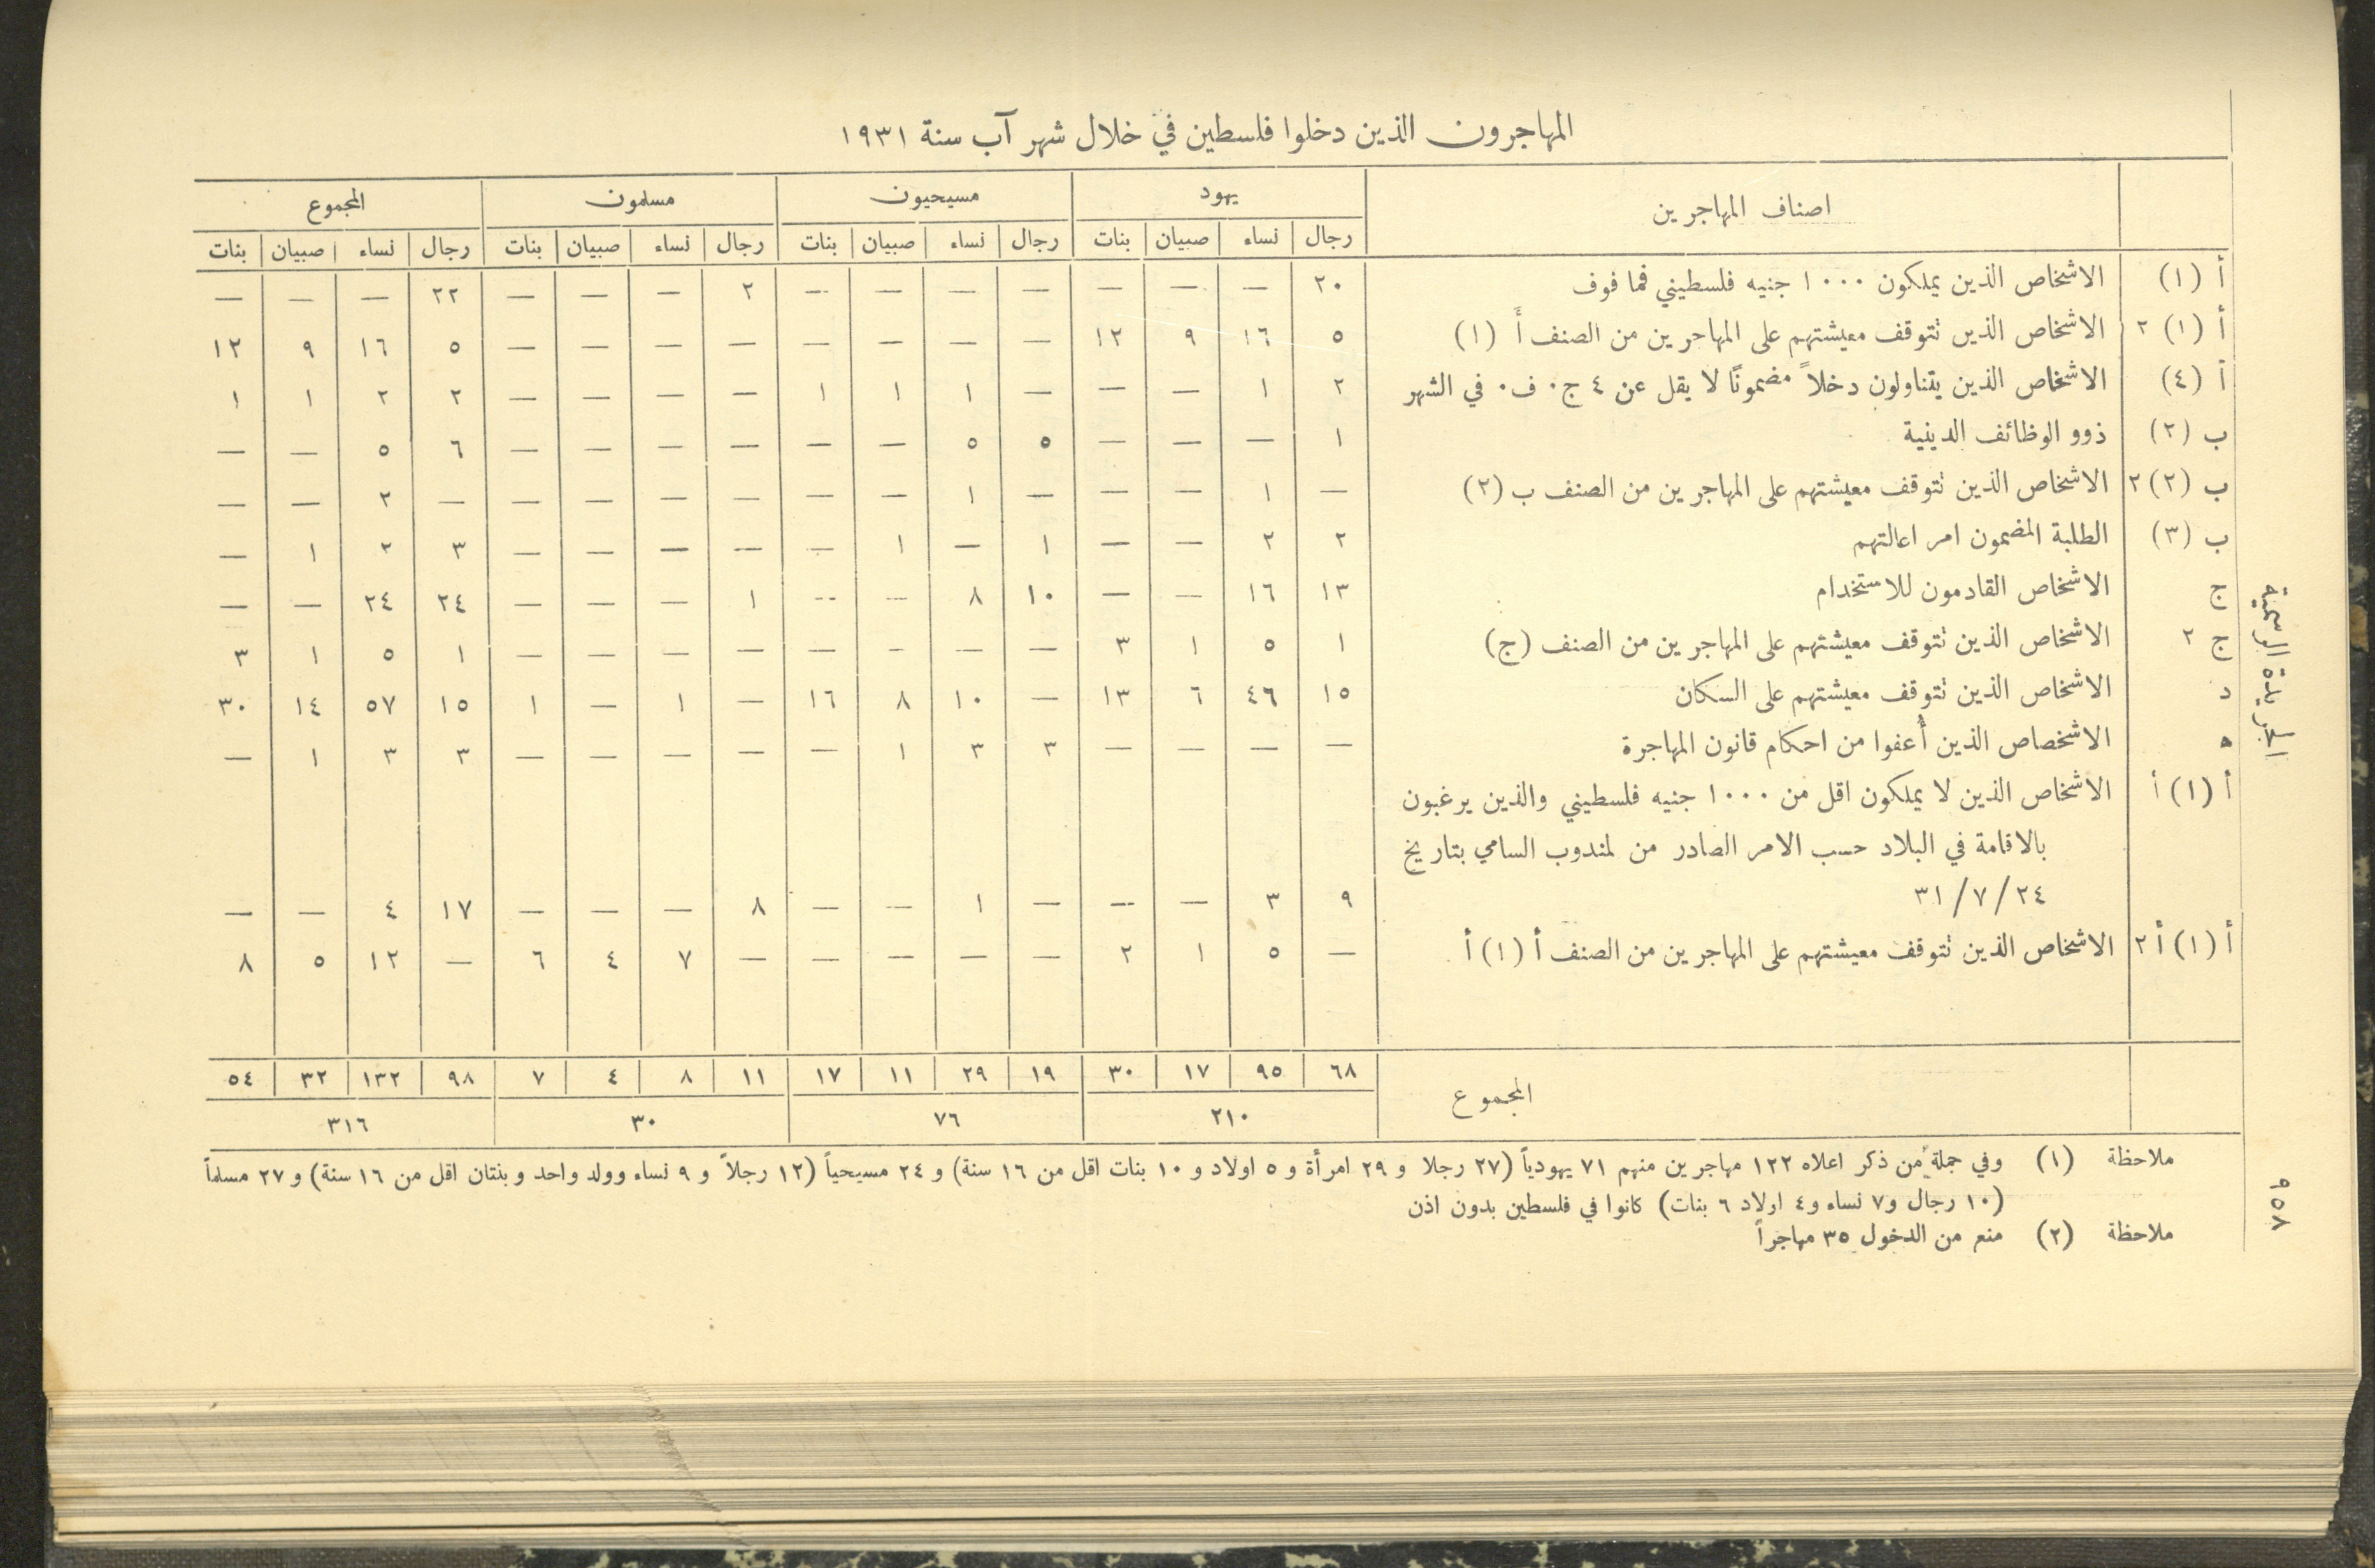 الجريدة الرسمية
٩٥٨
المهاجرون الذين دخلوا فلسطين في خلال شهر آب سنة ١٩٣١
اصناف المهاجرين | يهود | مسيحيون | مسلمون | المجموع
رجال | نساء | صبيان | بنات | رجال | نساء | صبيان | بنات | رجال | نساء | صبيان | بنات | رجال | نساء | صبيان | بنات
أ (١) | الاشخاص الذين يملكون ١٠٠٠ جنيه فلسطيني فما فوف | ٢٠ | — | — | — | — | — | — | — | ٢ | — | — | — | ٢٢ | — | — | —
أ (١) ٢ | الاشخاص الذين تتوقف معيشتهم على المهاجرين من الصنف أ (١) | ٥ | ١٦ | ٩ | ١٢ | — | — | — | — | — | — | — | — | ٥ | ١٦ | ٩ | ١٢
أ (٤) | الاشخاص الذين يتناولون دخلاً مضمونًا لا يقل عن ٤ ج٠ ف٠ في الشهر | ٢ | ١ | — | — | — | ١ | ١ | ١ | — | — | — | — | ٢ | ٢ | ١ | ١
ب (٢) | ذوو الوظائف الدينية | ١ | — | — | — | ٥ | ٥ | — | — | — | — | — | — | ٦ | ٥ | — | —
ب (٢) ٢ | الاشخاص الذين تتوقف معيشتهم على المهاجرين من الصنف ب (٢) | — | ١ | — | — | — | ١ | — | — | — | — | — | — | — | ٢ | — | —
ب (٣) | الطلبة المضمون امر اعالتهم | ٢ | ٢ | — | — | ١ | — | ١ | — | — | — | — | — | ٣ | ٢ | ١ | —
ج | الاشخاص القادمون للاستخدام | ١٣ | ١٦ | — | — | ١٠ | ٨ | — | — | ١ | — | — | — | ٢٤ | ٢٤ | — | —
ج ٢ | الاشخاص الذين تتوقف معيشتهم على المهاجرين من الصنف (ج) | ١ | ٥ | ١ | ٣ | — | — | — | — | — | — | — | — | ١ | ٥ | ١ | ٣
د | الاشخاص الذين تتوقف معيشتهم على السكان | ١٥ | ٤٦ | ٦ | ١٣ | — | ١٠ | ٨ | ١٦ | — | ١ | — | ١ | ١٥ | ٥٧ | ١٤ | ٣٠
ه | الاشخصاص الذين أُعفوا من احكام قانون المهاجرة | — | — | — | — | ٣ | ٣ | ١ | — | — | — | — | — | ٣ | ٣ | ١ | —
أ (١) أ | الاشخاص الذين لا يملكون اقل من ١٠٠٠ جنيه فلسطيني والذين يرغبون
بالاقامة في البلاد حسب الامر الصادر من لمندوب السامي بتاريخ
٢٤/٧/٣١ | ٩ | ٣ | — | — | — | ١ | — | — | ٨ | — | — | — | ١٧ | ٤ | — | —
أ (١) أ ٢ | الاشخاص الذين تتوقف معيشتهم على المهاجرين من الصنف أ (١) أ | — | ٥ | ١ | ٢ | — | — | — | — | — | ٧ | ٤ | ٦ | — | ١٢ | ٥ | ٨
المجموع | ٦٨ | ٩٥ | ١٧ | ٣٠ | ١٩ | ٢٩ | ١١ | ١٧ | ١١ | ٨ | ٤ | ٧ | ٩٨ | ١٣٢ | ٣٢ | ٥٤
٢١٠ | ٧٦ | ٣٠ | ٣١٦
ملاحظة (١) وفي جملة من ذكر اعلاه ١٢٢ مهاجرين منهم ٧١ يهودياً (٢٧ رجلا و ٢٩ امرأة و ٥ اولاد و ١٠ بنات اقل من ١٦ سنة) و ٢٤ مسيحياً (١٢ رجلاً و ٩ نساء وولد واحد وبنتان اقل من ١٦ سنة) و ٢٧ مسلماً
(١٠ رجال و٧ نساء و٤ اولاد ٦ بنات) كانوا في فلسطين بدون اذن
ملاحظة (٢) منع من الدخول ٣٥ مهاجراً